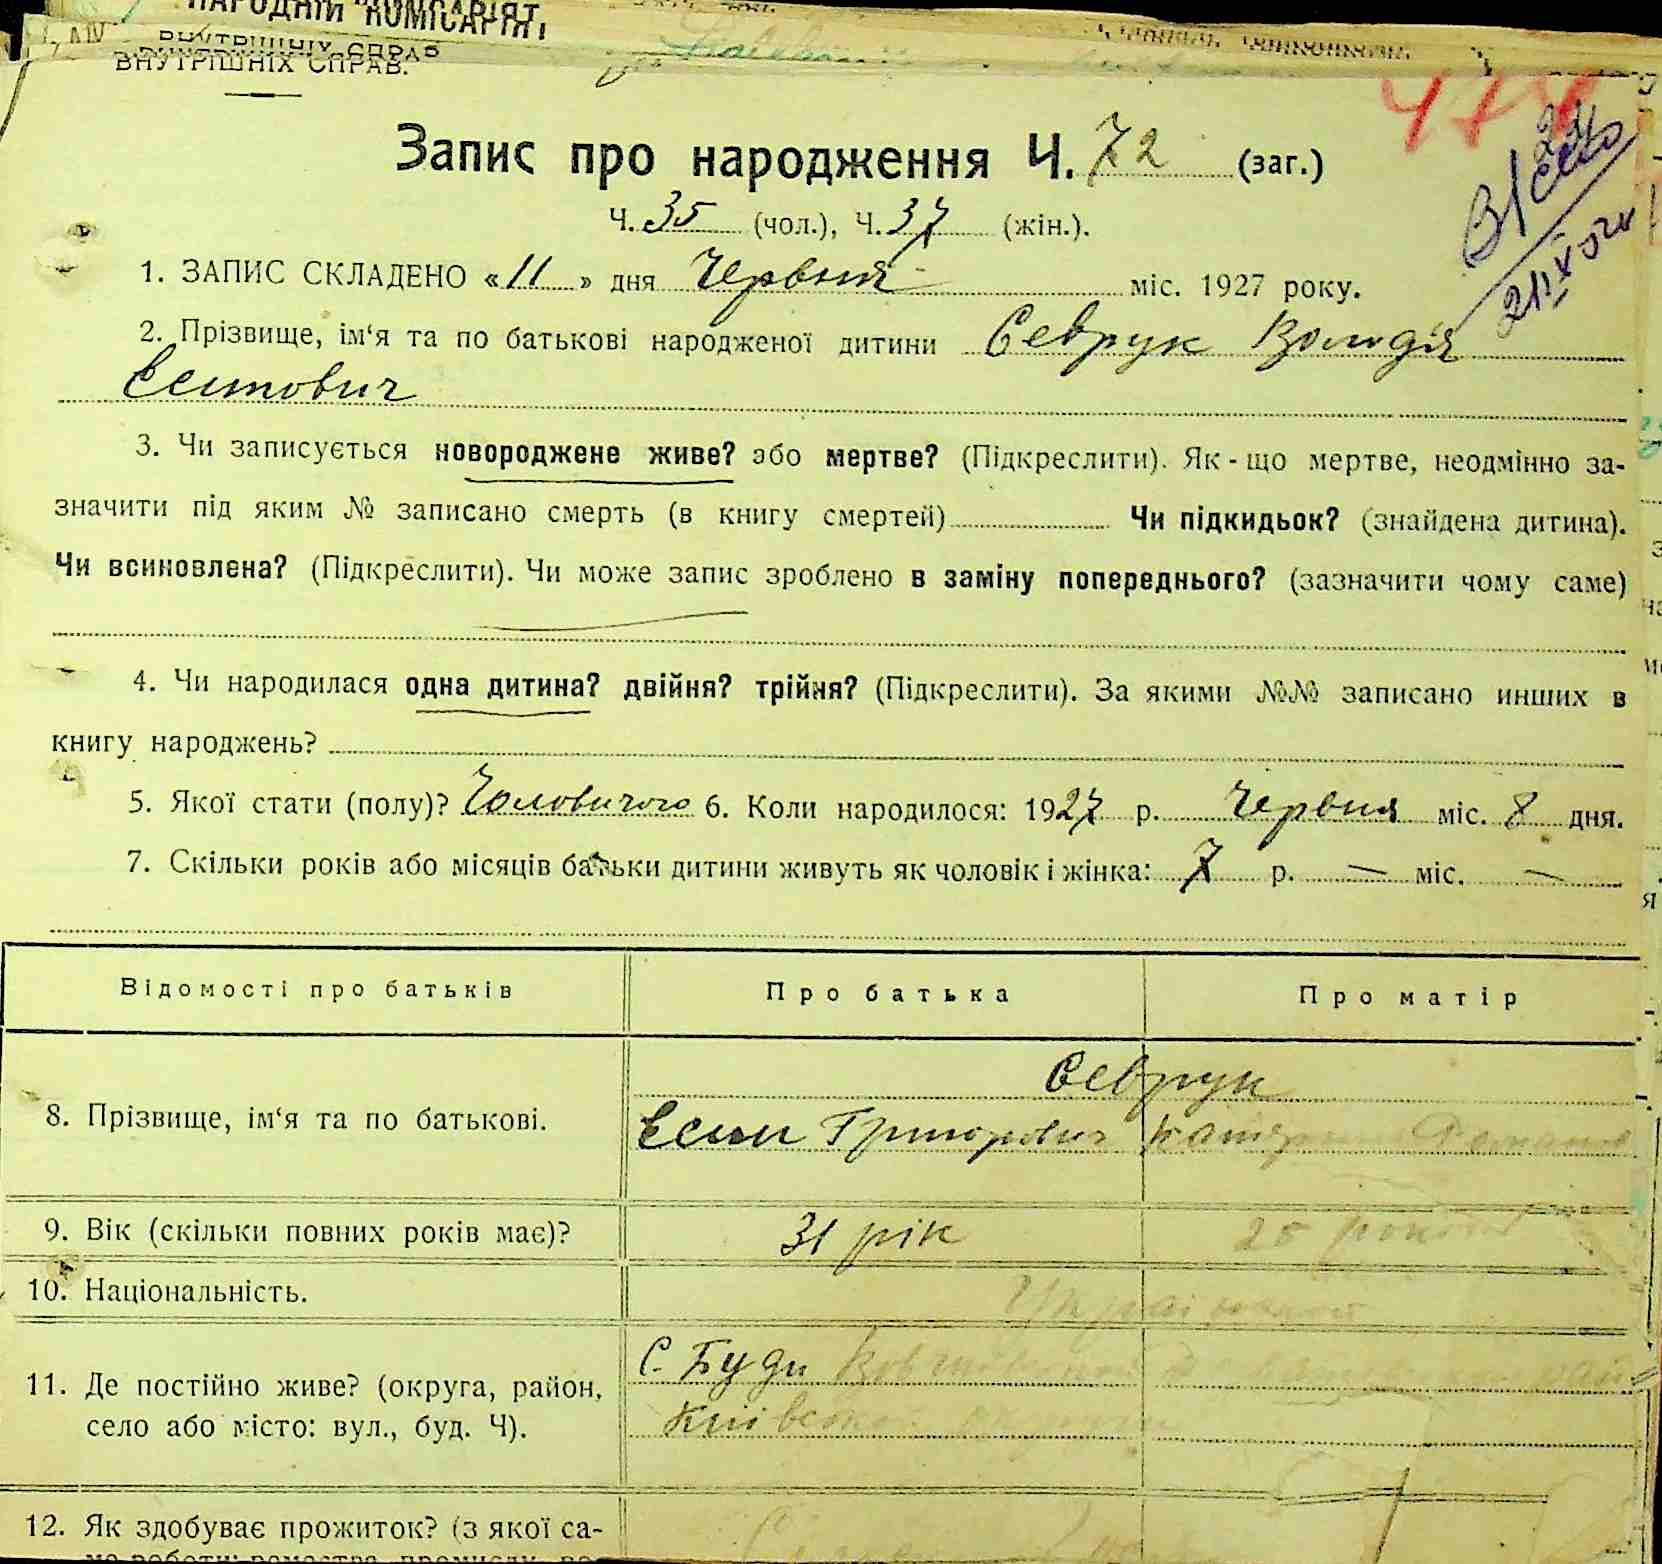 НАРОДНІЙ КОМІСАРІЯТ
ВНУТРІШНІХ СПРАВ
ВНУТРІШНІХ СПРАВ.
Запис про народження Ч. 72 (заг.)
Ч. 35 (чол.), Ч. 37 (жін.).
1. ЗАПИС СКЛАДЕНО «11» дня Червня міс. 1927 року.
2. Прізвище, ім‘я та по батькові народженої дитини Севрук Володя
Єситович
3. Чи записується новороджене живе? або мертве? (Підкреслити). Як-що мертве, неодмінно за-
значити під яким № записано смерть (в книгу смертей) Чи підкидьок? (знайдена дитина).
Чи всиновлена? (Підкреслити). Чи може запис зроблено в заміну попереднього? (зазначити чому саме)
4. Чи народилася одна дитина? двійня? трійня? (Підкреслити). За якими №№ записано инших в
книгу народжень?
5. Якої стати (полу)? Чоловічого 6. Коли народилося: 1927 р. Червня міс. 8 дня.
7. Скільки років або місяців батьки дитини живуть як чоловік і жінка: 7 р. — міс. —
Відомості про батьків Про батька Про матір
8. Прізвище, ім‘я та по батькові.
Севрук
Григорович
9. Вік (скільки повних років має)? 31 рік
10. Національність.
11. Де постійно живе? (округа, район,
село або місто: вул., буд. Ч).
С. Буди
12. Як здобуває прожиток? (з якої са-